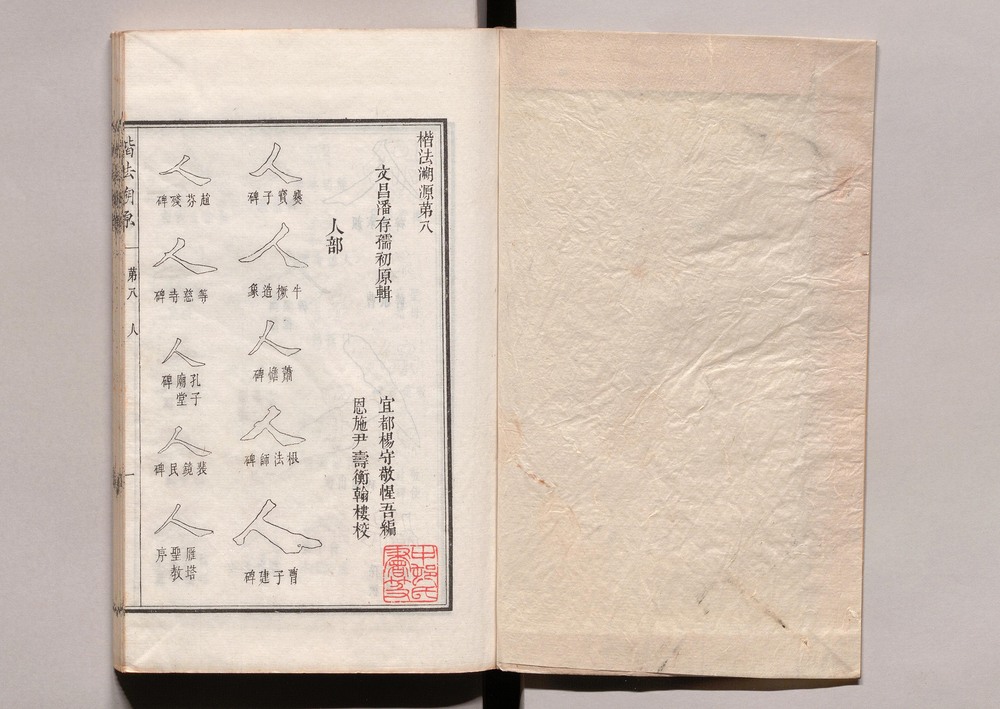 楷法溯源第八
文昌潘存孺初原輯
宜都楊守敬惺吾編
恩施尹壽衡翰樓校
人部
人
爨寶子碑
人
牛橛造象
人
蕭憺碑
人
根法師碑
人
曹子建碑
人
趙芬殘碑
人
等慈寺碑
人
孔子廟堂碑
人
裴鏡民碑
人
雁塔聖教序
楷法溯原
第八
人
一